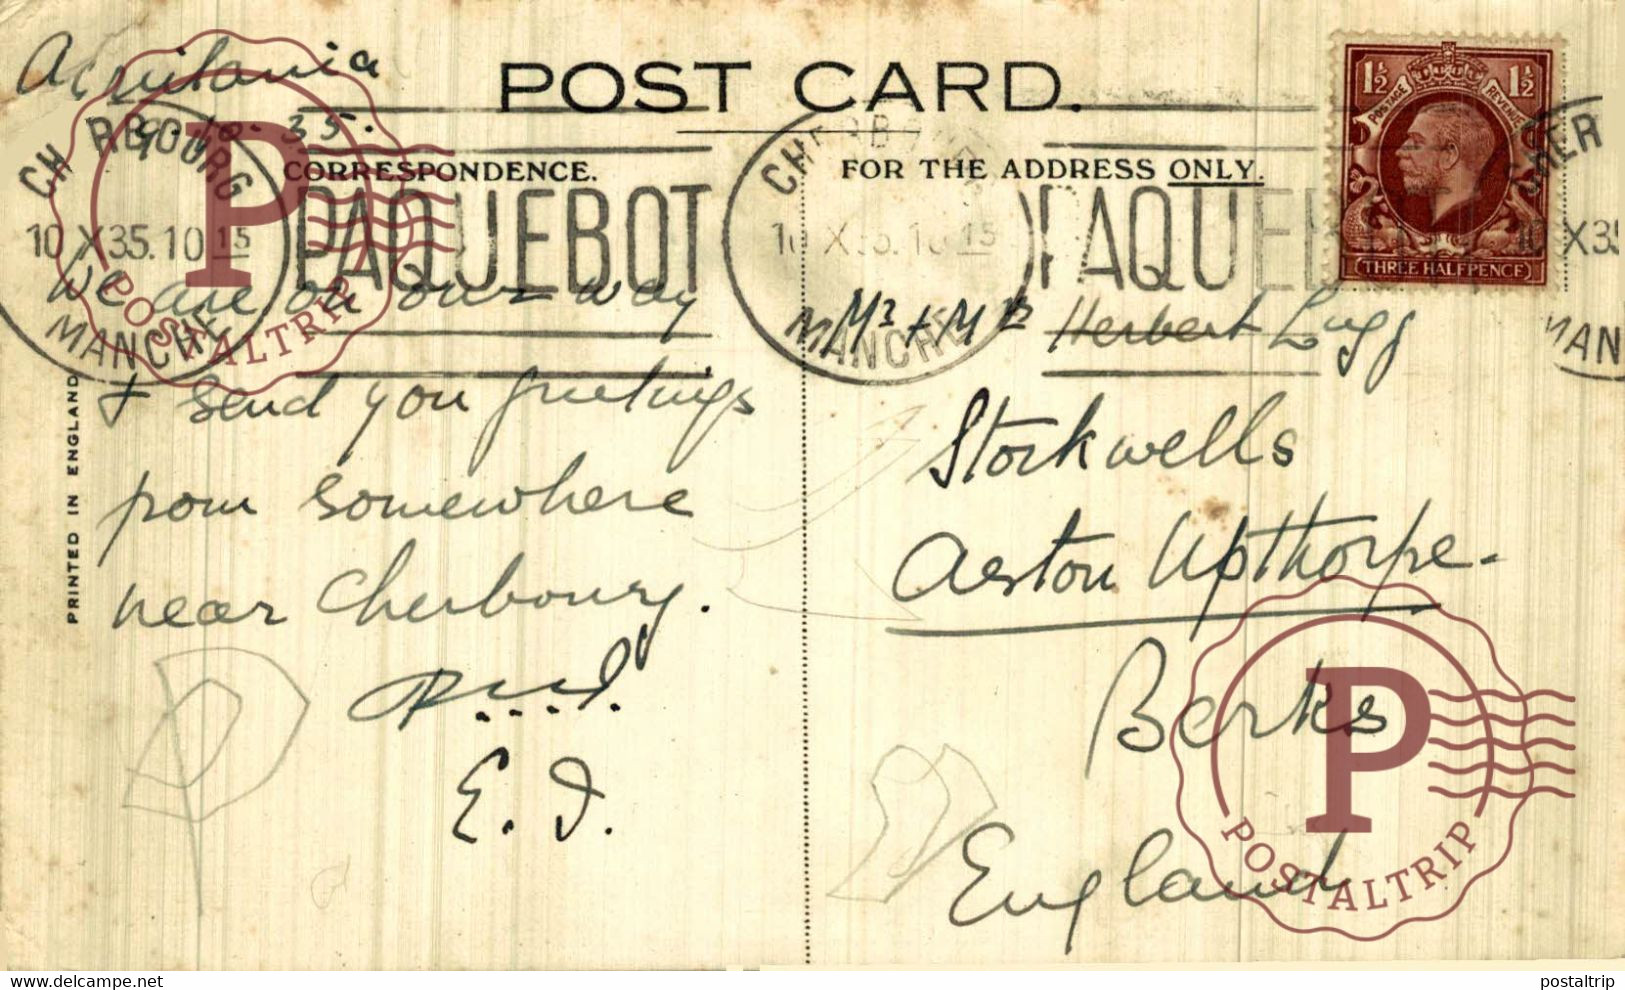 Aquitania
9.10.35.
POST CARD.
CORRESPONDENCE.
FOR THE ADDRESS ONLY.
1½ 1½
POSTAGE REVENUE
THREE HALFPENCE
CHERBOURG
10 X 35. 10 15
MANCHE
PAQUEBOT
CHERBOURG
10 X 35. 10 15
MANCHE
PAQUEBOT
CHER
10 X 35
MAN
We are on our way
+ send you greetings
from somewhere
near Cherbourg.
E. J.
Mr + Mrs Herbert Lugg
Stockwells
Aston Upthorpe.
Berks
England
PRINTED IN ENGLAND
P
POSTALTRIP
P
POSTALTRIP
postaltrip